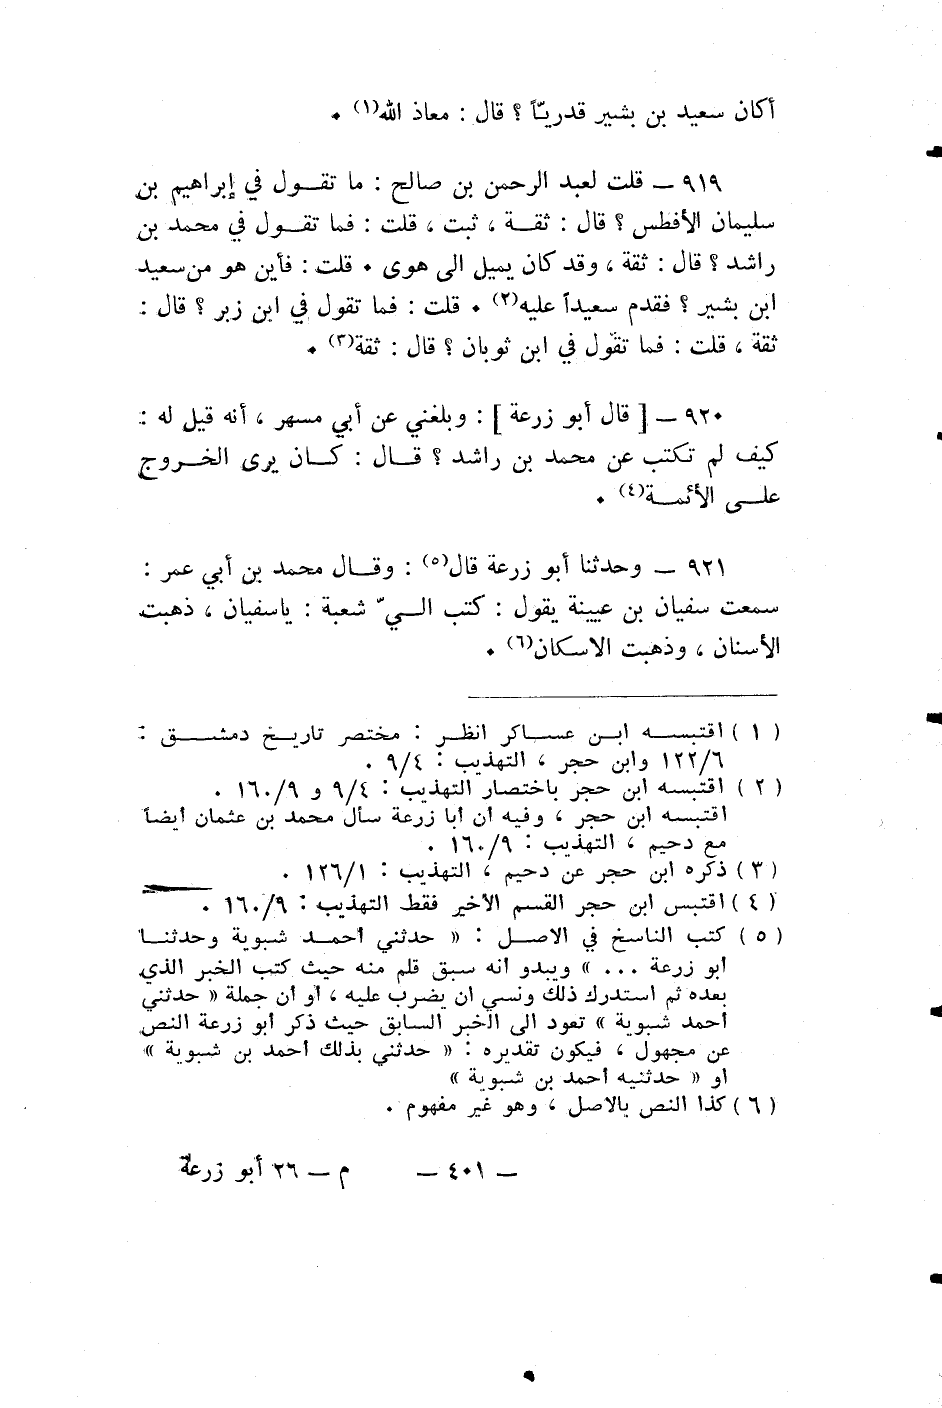 أكان سعيد بن بشير قدريّاً ؟ قال : معاذ الله(١) ٠
٩١٩ ــ قلت لعبد الرحمن بن صالح : ما تقــول في إبراهيم بن
سليمان الأفطس ؟ قال : ثقــة ، ثبت ، قلت : فما تقــول في محمد بن
راشد ؟ قال : ثقة ، وقد كان يميل الى هوى ٠ قلت : فأين هو من سعيد
ابن بشير ؟ فقدم سعيداً عليه(٢) ٠ قلت : فما تقول في ابن زبر ؟ قال :
ثقة ، قلت : فما تقول في ابن ثوبان ؟ قال : ثقة(٣) ٠
٩٢٠ ــ [ قال أبو زرعة ] : وبلغني عن أبي مسهر ، أنه قيل له :
كيف لم تكتب عن محمد بن راشد ؟ قــال : كــان يرى الخــروج
علــى الأئمــة(٤) ٠
٩٢١ ــ وحدثنا أبو زرعة قال(٥) : وقــال محمد بن أبي عمر :
سمعت سفيان بن عيينة يقول : كتب اليّ شعبة : ياسفيان ، ذهبت
الأسنان ، وذهبت الاسكان(٦) ٠
( ١ ) اقتبســه ابــن عســاكر انظــر : مختصر تاريــخ دمشــق :
١٢٢/٦ وابن حجر ، التهذيب : ٩/٤ ٠
( ٢ ) اقتبسه ابن حجر باختصار التهذيب : ٩/٤ و ١٦٠/٩ ٠
اقتبسه ابن حجر ، وفيه أن أبا زرعة سأل محمد بن عثمان أيضاً
مع دحيم ، التهذيب : ١٦٠/٩ ٠
( ٣ ) ذكره ابن حجر عن دحيم ، التهذيب : ١٢٦/١ ٠
( ٤ ) اقتبس ابن حجر القسم الأخير فقط التهذيب : ١٦٠/٩ ٠
( ٥ ) كتب الناسخ في الاصــل : « حدثني أحمــد شبوية وحدثنــا
أبو زرعة ... » ويبدو أنه سبق قلم منه حيث كتب الخبر الذي
بعده ثم استدرك ذلك ونسي ان يضرب عليه ، أو أن جملة « حدثني
أحمد شبوية » تعود الى الخبر السابق حيث ذكر أبو زرعة النص
عن مجهول ، فيكون تقديره : « حدثني بذلك أحمد بن شبوية »
أو « حدثنيه أحمد بن شبوية »
( ٦ ) كذا النص بالاصل ، وهو غير مفهوم ٠
ــ ٤٠١ ــ م ــ ٢٦ أبو زرعة